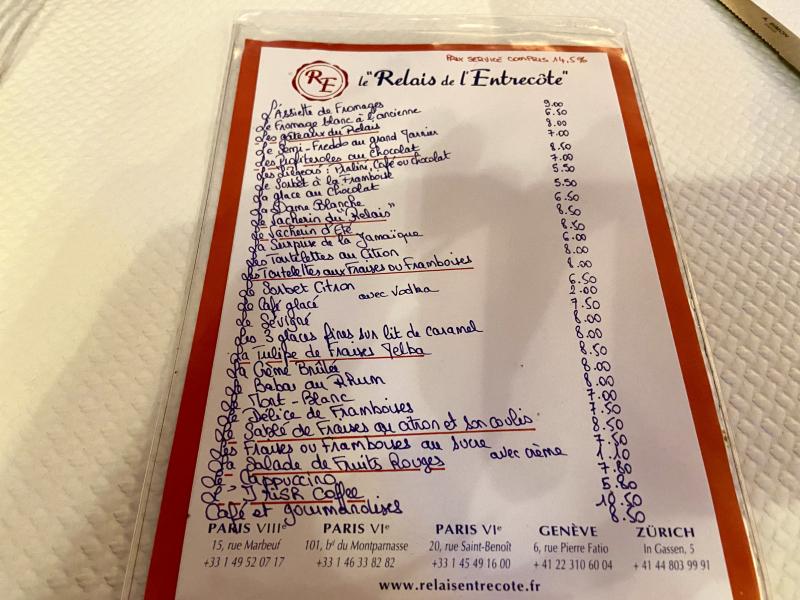 PRIX SERVICE COMPRIS 14,5%
RE le "Relais de l'Entrecôte"
L'Assiette de Fromages 9.00
Le Fromage blanc à l'ancienne 6.50
Les gâteaux du Relais 8.00
Le Semi-Freddo au grand Marnier 7.00
Les Profiteroles au chocolat 8.50
Les Liégeois: Praliné, Café ou Chocolat 7.00
Le Sorbet à la Framboise 5.50
La glace au Chocolat 5.50
La Dame Blanche 6.50
Le Vacherin du "Relais" 8.50
Le Vacherin d'Eté 8.50
La Surprise de la Jamaïque 6.00
Les Tartelettes au Citron 8.00
Les Tartelettes aux Fraises ou Framboises 8.00
Le Sorbet Citron 6.50
avec Vodka 2.00
Le Café glacé 7.50
Le Sévigné 8.00
Les 3 glaces fines sur lit de caramel 8.00
La Tulipe de Fraises Melba 8.50
La Crème Brûlée 8.00
Le Baba au Rhum 8.00
Le Mont-Blanc 7.00
Le Délice de Framboises 7.50
Le Sablé de Fraises au citron et son coulis 8.50
Les Fraises ou Framboises au sucre 7.50
avec crème 1.10
La Salade de Fruits Rouges 7.80
Le Cappuccino 5.80
L'IRISH Coffee 10.50
Café et gourmandises 8.50
PARIS VIIIe PARIS VIe PARIS VIe GENÈVE ZÜRICH
15, rue Marbeuf 101, bd du Montparnasse 20, rue Saint-Benoît 6, rue Pierre Fatio In Gassen, 5
+33 1 49 52 07 17 +33 1 46 33 82 82 +33 1 45 49 16 00 + 41 22 310 60 04 + 41 44 803 99 91
www.relaisentrecote.fr